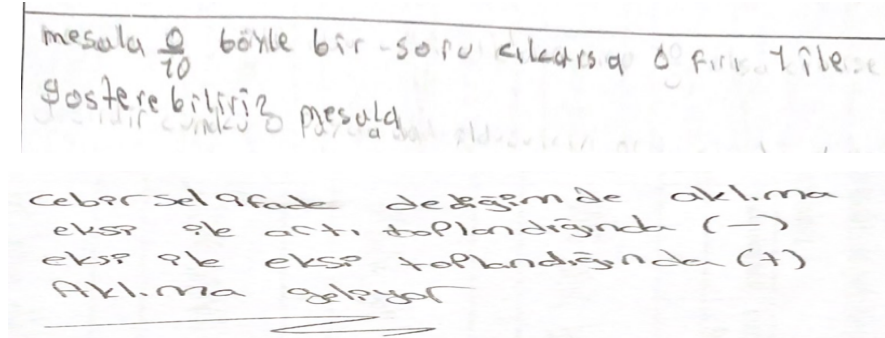 mesala 0/10 böyle bir soru çıkarsa 0
gösterebiliriz mesala
cebirsel ifade dediğimde aklıma
eksi ile artı toplandığında (-)
eksi ile eksi toplandığında (+)
Aklıma geliyor